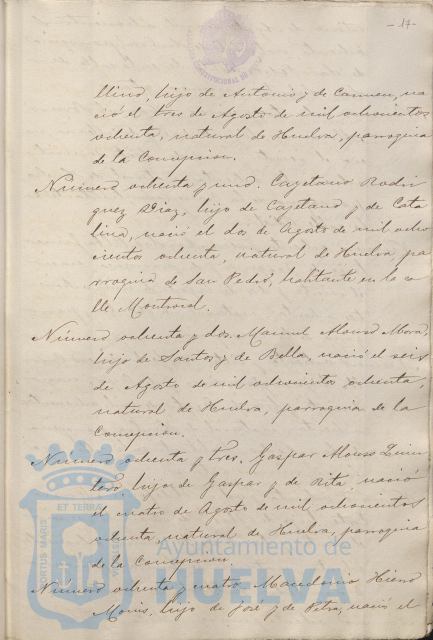 - 17 -
llino, hijo de Antonio y de Carmen, na
ció el tres de Agosto de mil ochocientos
ochenta, natural de Huelva, parroquia
de la Concepcion.
Número ochenta y uno. Cayetano Rodri
guez Diaz, hijo de Cayetano y de Cata
lina, nació el dos de Agosto de mil ocho
cientos ochenta, natural de Huelva, pa
rroquia de San Pedro, habitante en la ca
lle Montrocal.
Número ochenta y dos. Manuel Alonso Mora,
hijo de Santos y de Bella, nació el seis
de Agosto de mil ochocientos ochenta,
natural de Huelva, parroquia de la
Concepcion.
Número ochenta y tres. Gaspar Alonso
hijo de Gaspar y de Rita, nació
el cuatro de Agosto de mil ochocientos
ochenta, natural de Huelva, parroquia
de la Concepcion.
Número ochenta y cuatro. Macedonio
hijo de José y de Petra, nació el
ET TERRA
PORTUS MARIS
Ayuntamiento de
HUELVA